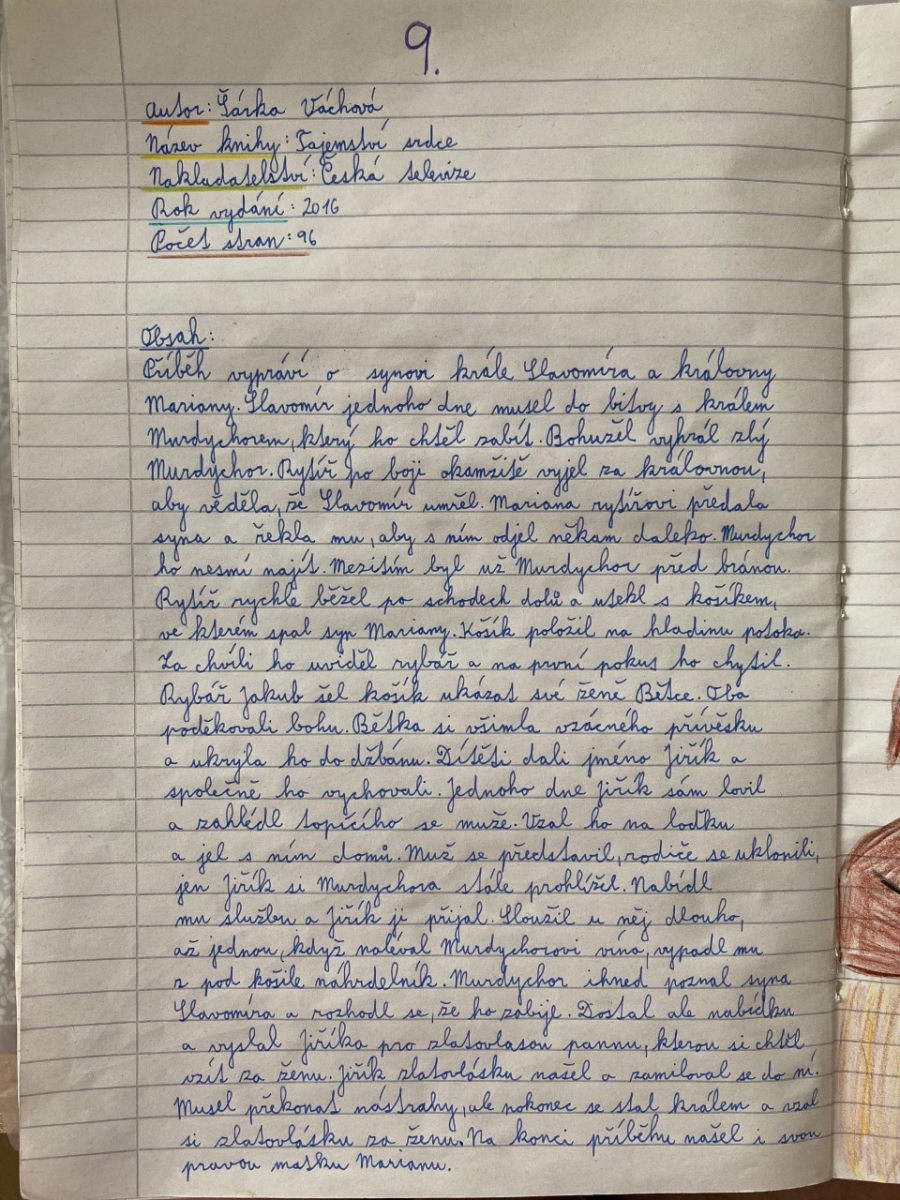 9.
Autor: Šárka Váchová
Název knihy: Tajemství srdce
Nakladatelství: Česká televize
Rok vydání: 2016
Počet stran: 96
Obsah:
Příběh vypráví o synovi krále Slavomíra a královny
Mariany. Slavomír jednoho dne musel do bitvy s králem
Murdychorem, který ho chtěl zabít. Bohužel vyhrál zlý
Murdychor. Rytíř po boji okamžitě vyjel za královnou,
aby věděla, že Slavomír umřel. Mariana rytířovi předala
syna a řekla mu, aby s ním odjel někam daleko. Murdychor
ho nesmí najít. Mezitím byl už Murdychor před bránou.
Rytíř rychle běžel po schodech dolů a utekl s košíkem,
ve kterém spal syn Mariany. Košík položil na hladinu potoka.
Za chvíli ho uviděl rybář a na první pokus ho chytil.
Rybář Jakub šel košík ukázat své ženě Bětce. Oba
poděkovali bohu. Bětka si všimla vzácného přívěsku
a ukryla ho do džbánu. Dítěti dali jméno Jiřík a
společně ho vychovali. Jednoho dne Jiřík sám lovil
a zahlédl topícího se muže. Vzal ho na loďku
a jel s ním domů. Muž se představil, rodiče se uklonili,
jen Jiřík si Murdychora stále prohlížel. Nabídl
mu službu a Jiřík ji přijal. Sloužil u něj dlouho,
až jednou, když naléval Murdychorovi vína, vypadl mu
z pod košile náhrdelník. Murdychor ihned poznal syna
Slavomíra a rozhodl se, že ho zabije. Dostal ale nabídku
a vyslal Jiříka pro zlatovlasou pannu, kterou si chtěl
vzít za ženu. Jiřík zlatovlásku našel a zamiloval se do ní.
Musel překonat nástrahy, ale nakonec se stal králem a vzal
si zlatovlásku za ženu. Na konci příběhu našel i svou
pravou matku Marianu.